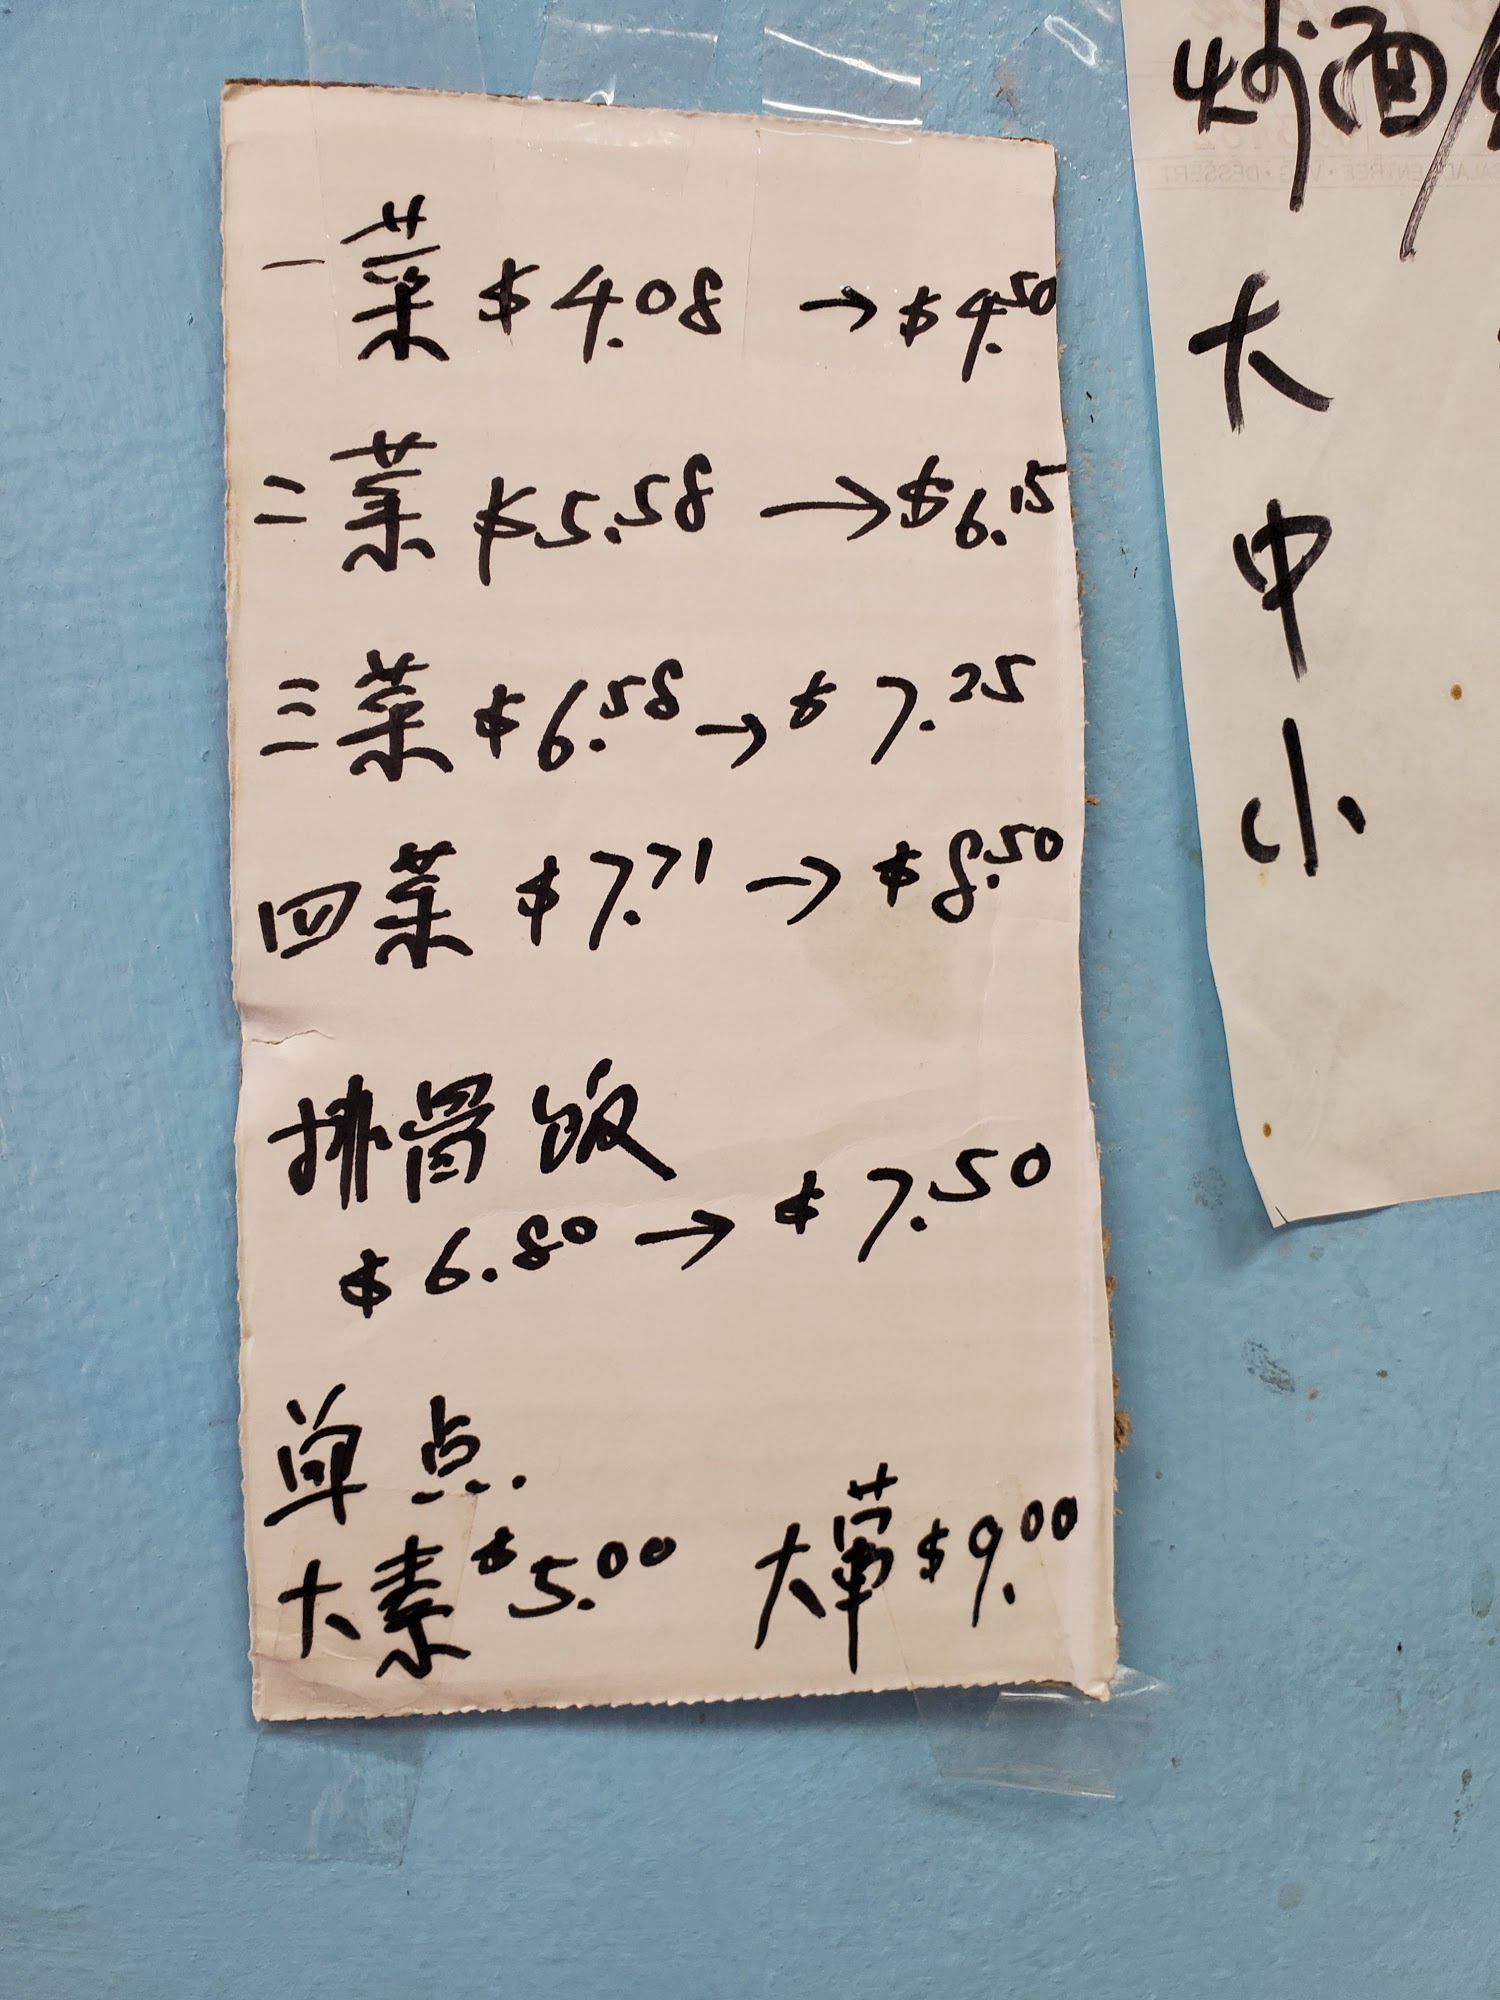 一菜 $4.08 → $4.50
二菜 $5.58 → $6.15
三菜 $6.58 → $7.25
四菜 $7.71 → $8.50
排骨饭
$6.80 → $7.50
单点.
大素 $5.00 大荤 $9.00
炒酒/
大
中
小